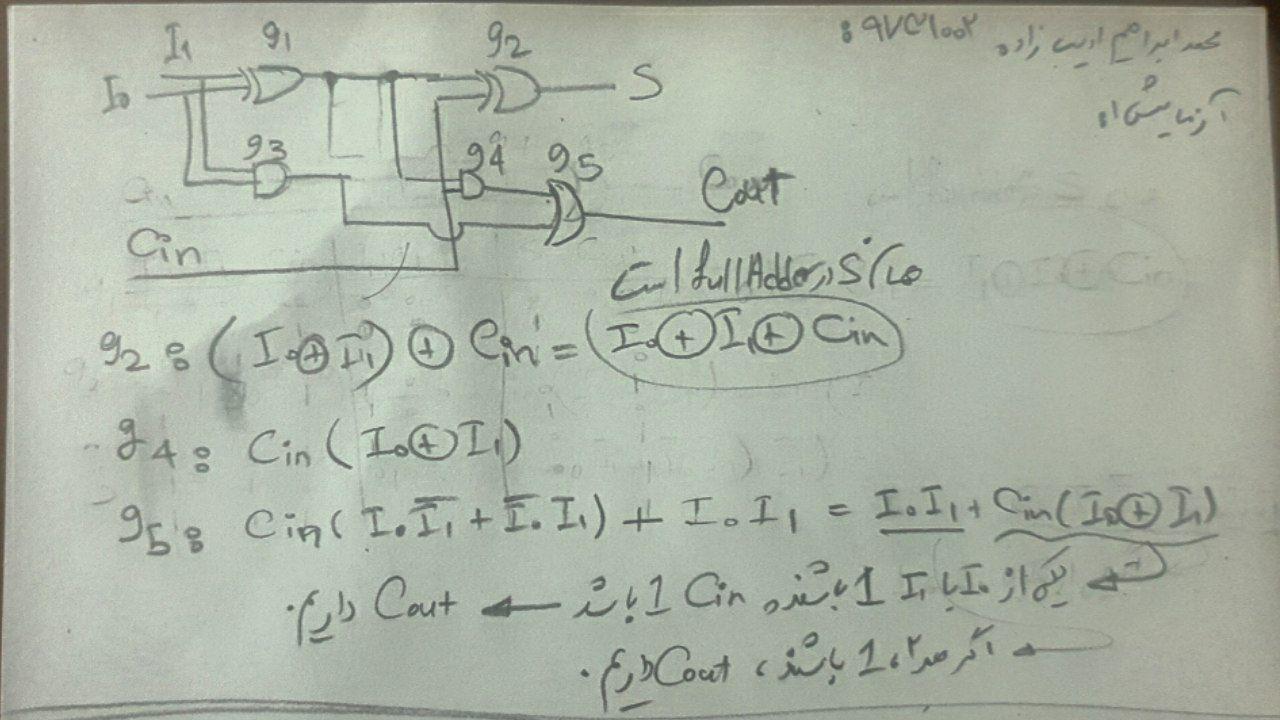 محمد ابراهیم ادیب زاده
آزمایش ۱۰
I₁ g1 g2
I₀ S
g3 g4 g5
Cout
Cin
S در full Adder است
g2 : (I₀ ⊕ I₁) ⊕ Cin = I₀ ⊕ I₁ ⊕ Cin
g4 : Cin (I₀ ⊕ I₁)
g5 : Cin (I₀.I̅₁ + I̅₀.I₁) + I₀.I₁ = I₀.I₁ + Cin (I₀ ⊕ I₁)
یکی از I₀ یا I₁ 1 باشند و Cin 1 باشد ← Cout داریم.
اگر هر ۲، 1 باشند، Cout داریم.